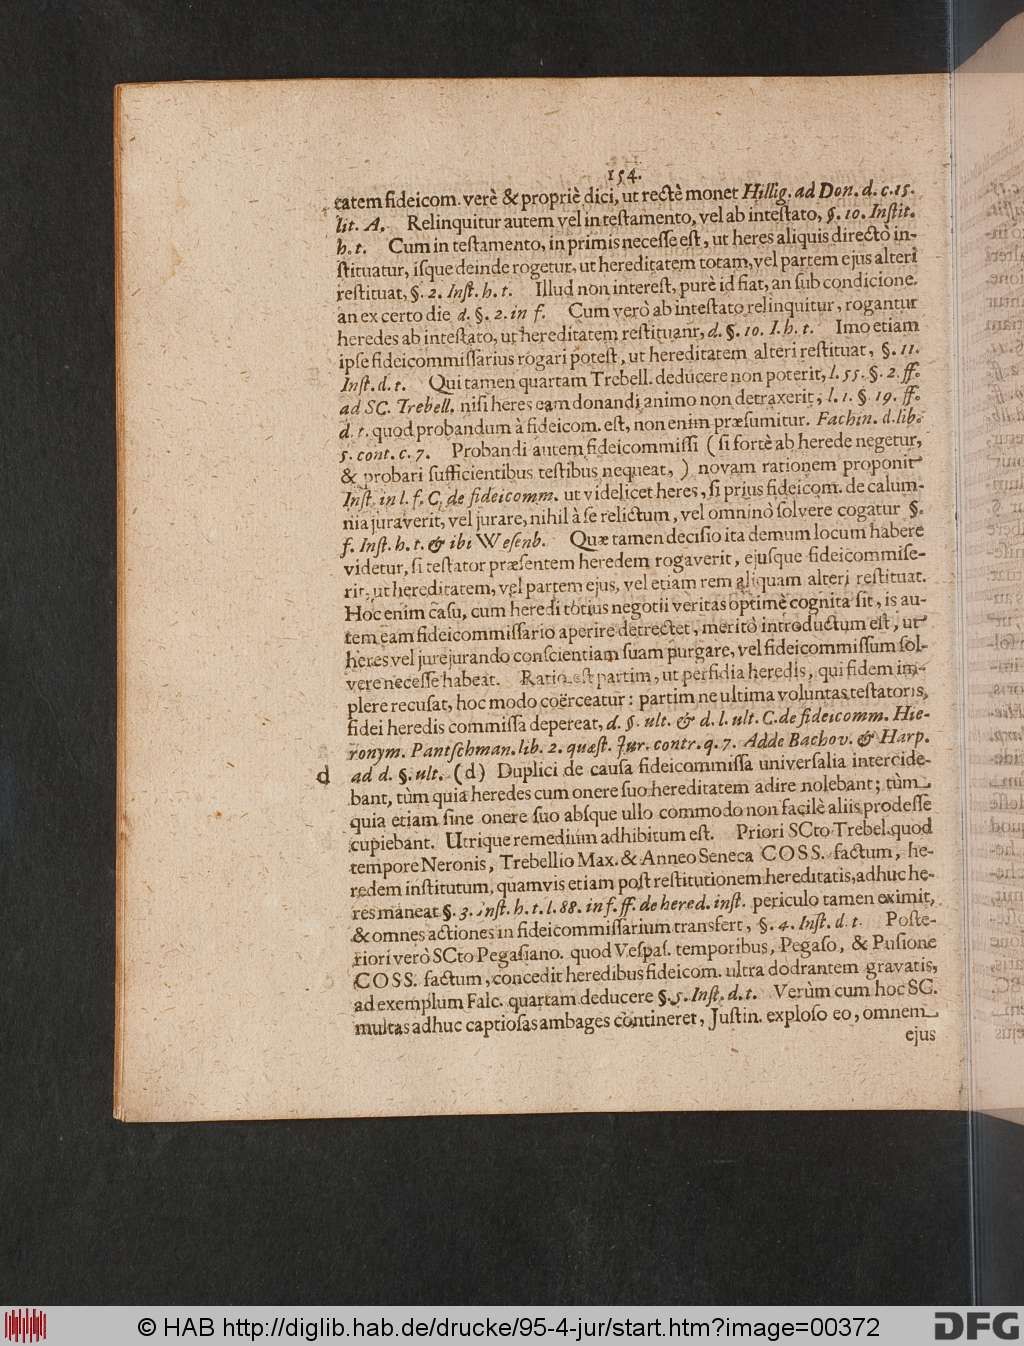 154.
tatem fideicom. verè & propriè dici, ut rectè monet Hillig. ad Don. d. c. 15.
lit. A. Relinquitur autem vel in testamento, vel ab intestato, §. 10. Instit.
h. t. Cum in testamento, in primis necesse est, ut heres aliquis directò in-
stituatur, isque deinde rogetur, ut hereditatem totam, vel partem ejus alteri
restituat, §. 2. Inst. h. t. Illud non interest, purè id fiat, an sub condicione.
an ex certo die d. §. 2. in f. Cum verò ab intestato relinquitur, rogantur
heredes ab intestato, ut hereditatem restituant, d. §. 10. I. h. t. Imo etiam
ipse fideicommissarius rogari potest, ut hereditatem alteri restituat, §. 11.
Inst. d. t. Qui tamen quartam Trebell. deducere non poterit, l. 55. §. 2. ff.
ad SC. Trebell. nisi heres eam donandi animo non detraxerit, l. 1. § 19. ff.
d. t. quod probandum à fideicom. est, non enim præsumitur. Fachin. d. lib.
5. cont. c. 7. Probandi autem fideicommissi ( si fortè ab herede negetur,
& probari sufficientibus testibus nequeat, ) novam rationem proponit
Inst. in l. f. C. de fideicomm. ut videlicet heres, si prius fideicom. de calum-
nia juraverit, vel jurare, nihil à se relictum, vel omninò solvere cogatur §.
f. Inst. h. t. & ibi Wesenb. Quæ tamen decisio ita demum locum habere
videtur, si testator præsentem heredem rogaverit, ejusque fideicommise-
rit, ut hereditatem, vel partem ejus, vel etiam rem aliquam alteri restituat.
Hoc enim casu, cum heredi totius negotii veritas optimè cognita sit, is au-
tem eam fideicommissario aperire detrectet, meritò introductum est, ut
heres vel jurejurando conscientiam suam purgare, vel fideicommissum sol-
vere necesse habeat. Ratio est partim, ut perfidia heredis, qui fidem im-
plere recusat, hoc modo coërceatur: partim ne ultima voluntas testatoris,
fidei heredis commissa depereat, d. §. ult. & d. l. ult. C. de fideicomm. Hie-
ronym. Pantschman. lib. 2. quæst. Jur. contr. q. 7. Adde Bachov. & Harp.
d ad d. §. ult. (d) Duplici de causa fideicommissa universalia intercide-
bant, tùm quia heredes cum onere suo hereditatem adire nolebant; tùm
quia etiam sine onere suo absque ullo commodo non facilè aliis prodesse
cupiebant. Utrique remedium adhibitum est. Priori SCto Trebel. quod
tempore Neronis, Trebellio Max. & Anneo Seneca COSS. factum, he-
redem institutum, quamvis etiam post restitutionem hereditatis, adhuc he-
res maneat §. 3. Inst. h. t. l. 88. in f. ff. de hered. inst. periculo tamen eximit,
& omnes actiones in fideicommissarium transfert, §. 4. Inst. d. t. Poste-
riori verò SCto Pegasiano. quod Vespas. temporibus, Pegaso, & Pusione
COSS. factum, concedit heredibus fideicom. ultra dodrantem gravatis,
ad exemplum Falc. quartam deducere §. 5. Inst. d. t. Verùm cum hoc SC.
multas adhuc captiosas ambages contineret, Justin. exploso eo, omnem
ejus
© HAB http://diglib.hab.de/drucke/95-4-jur/start.htm?image=00372
DFG